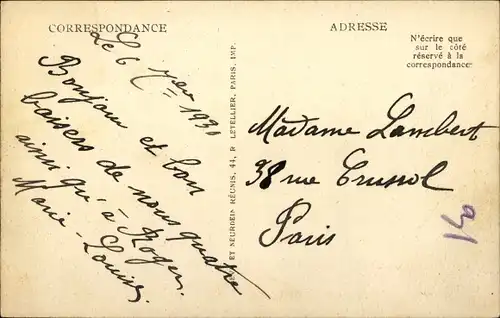 CORRESPONDANCE
ADRESSE
N'écrire que
sur le côté
réservé à la
correspondance
Le 6 1930
Bonjour et bon
baisers de nous quatre
ainsi qu'à Roger.
Marie-Louise.
ET NEURDEIN RÉUNIS, 44, R LETELLIER, PARIS, IMP.
Madame Lambert
38 rue Crussol
Paris